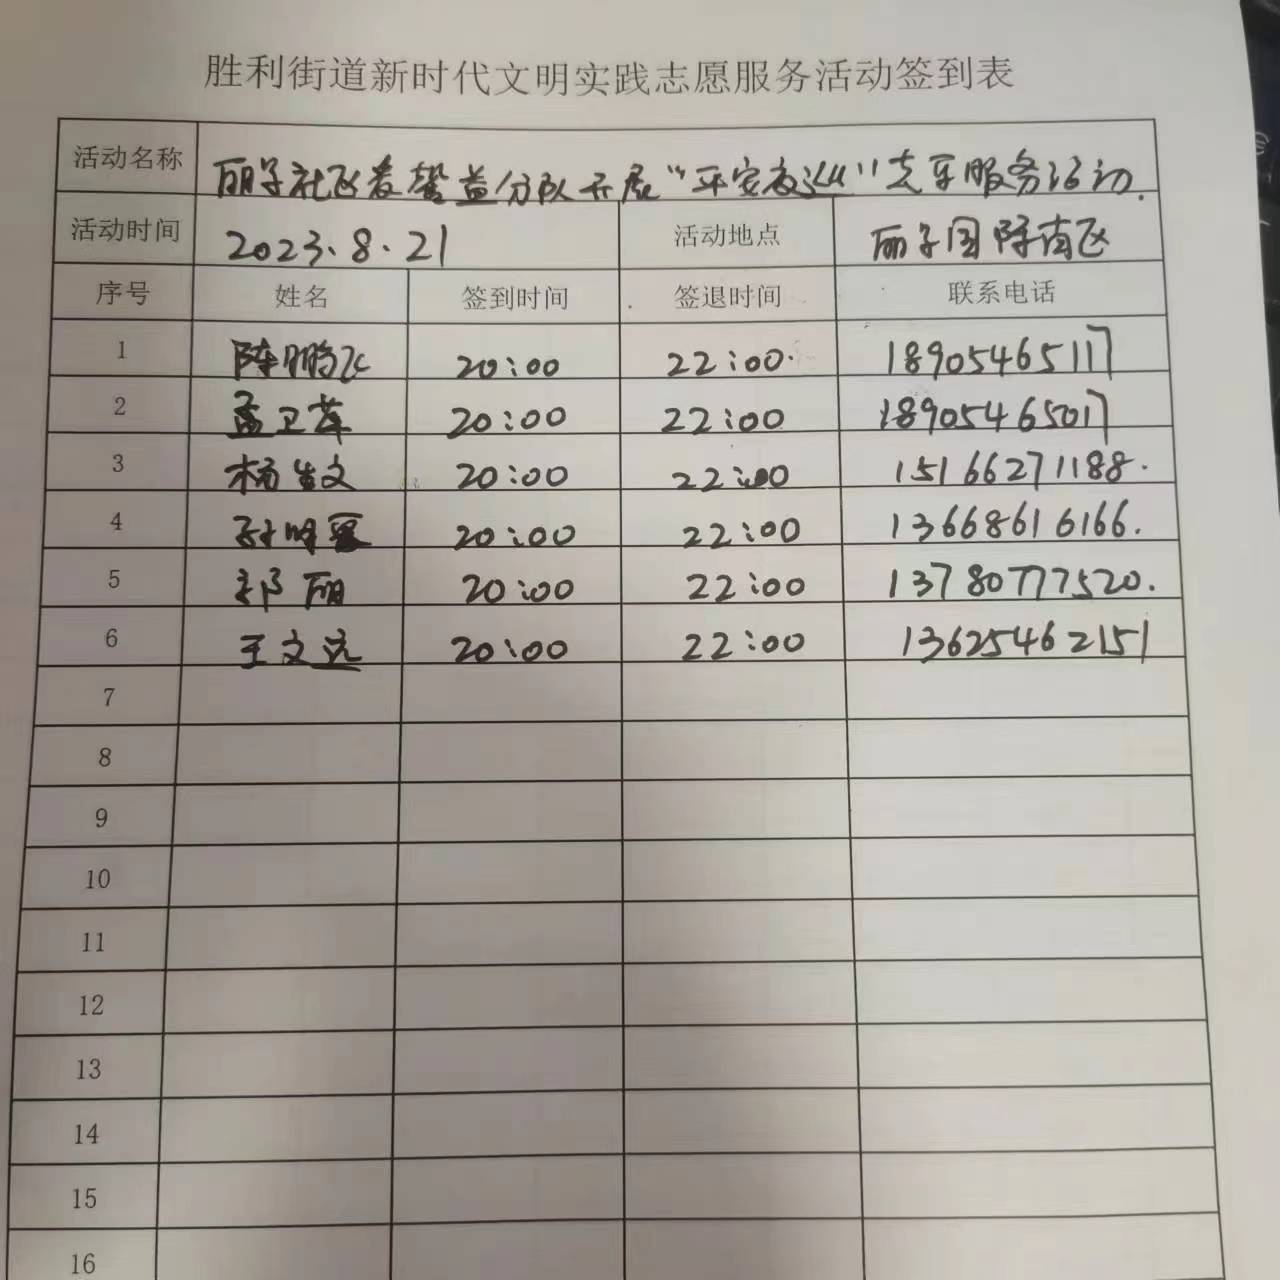 胜利街道新时代文明实践志愿服务活动签到表
活动名称 丽景社区爱馨益分队开展“平安夜巡”志愿服务活动.
活动时间 2023.8.21 活动地点 丽景国际南区
序号 姓名 签到时间 签退时间 联系电话
1 陈鹏飞 20:00 22:00 18905465117
2 孟卫萍 20:00 22:00 18905465017
3 杨生文 20:00 22:00 15166271188.
4 孙明 20:00 22:00 13668616166.
5 郭丽 20:00 22:00 13780777520.
6 王文远 20:00 22:00 13625462151
7
8
9
10
11
12
13
14
15
16